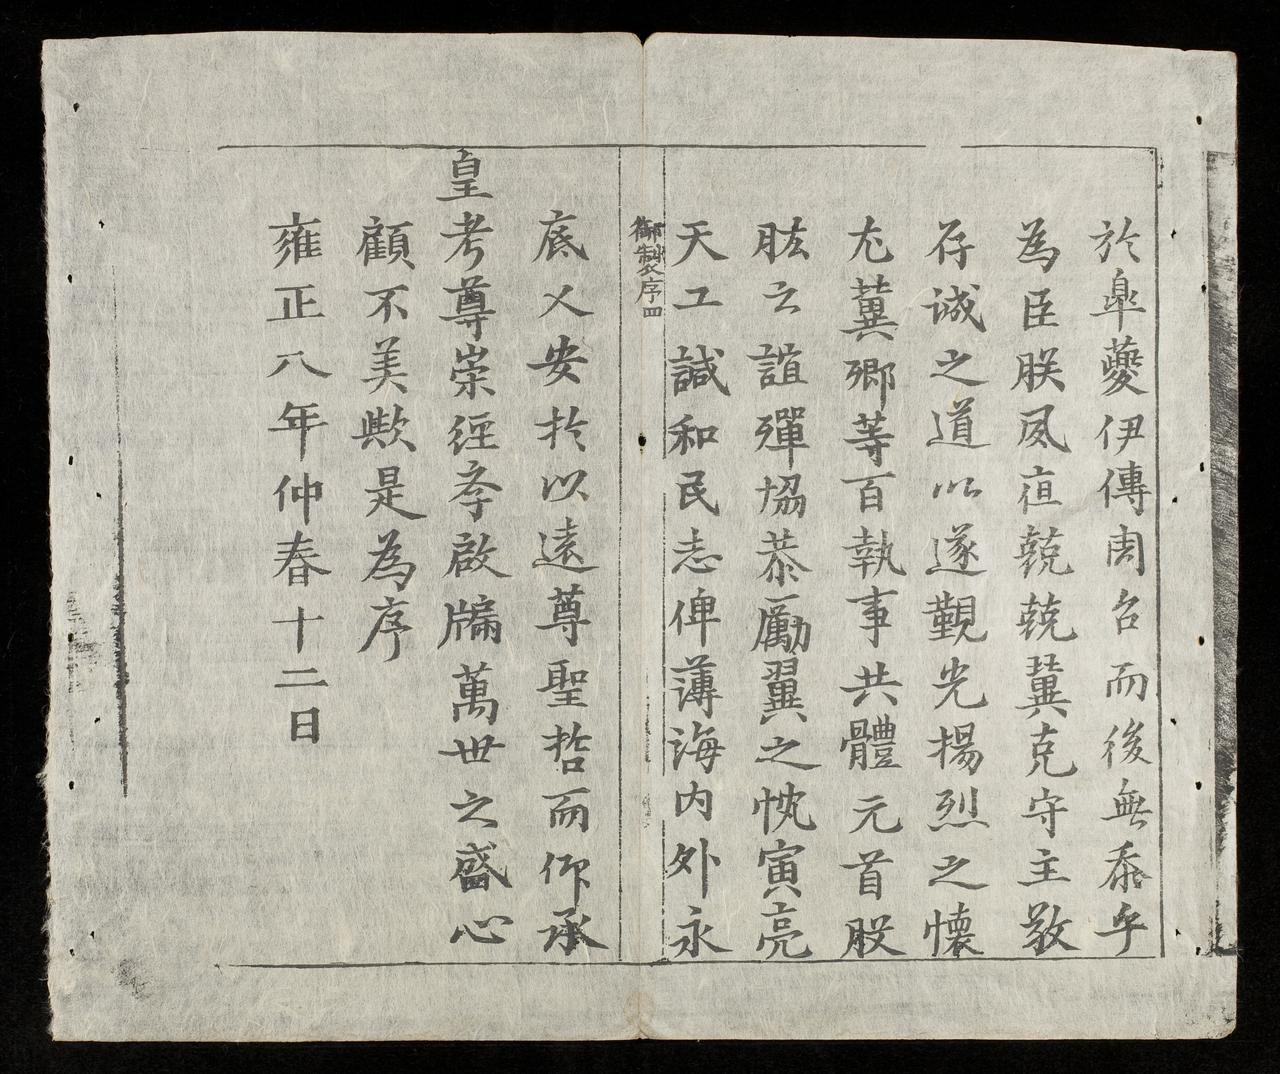 於臯夔伊傅周召而後無忝乎
為臣朕夙夜兢兢冀克守主敬
存誠之道以遂覲光揚烈之懷
尤冀卿等百執事共體元首股
肱之誼殫協恭勵翼之忱寅亮
天工諴和民志俾薄海內外永
御製序 四
底乂安於以遠尊聖哲而仰承
皇考尊崇經學啟牖萬世之盛心
顧不美歟是為序
雍正八年仲春十二日